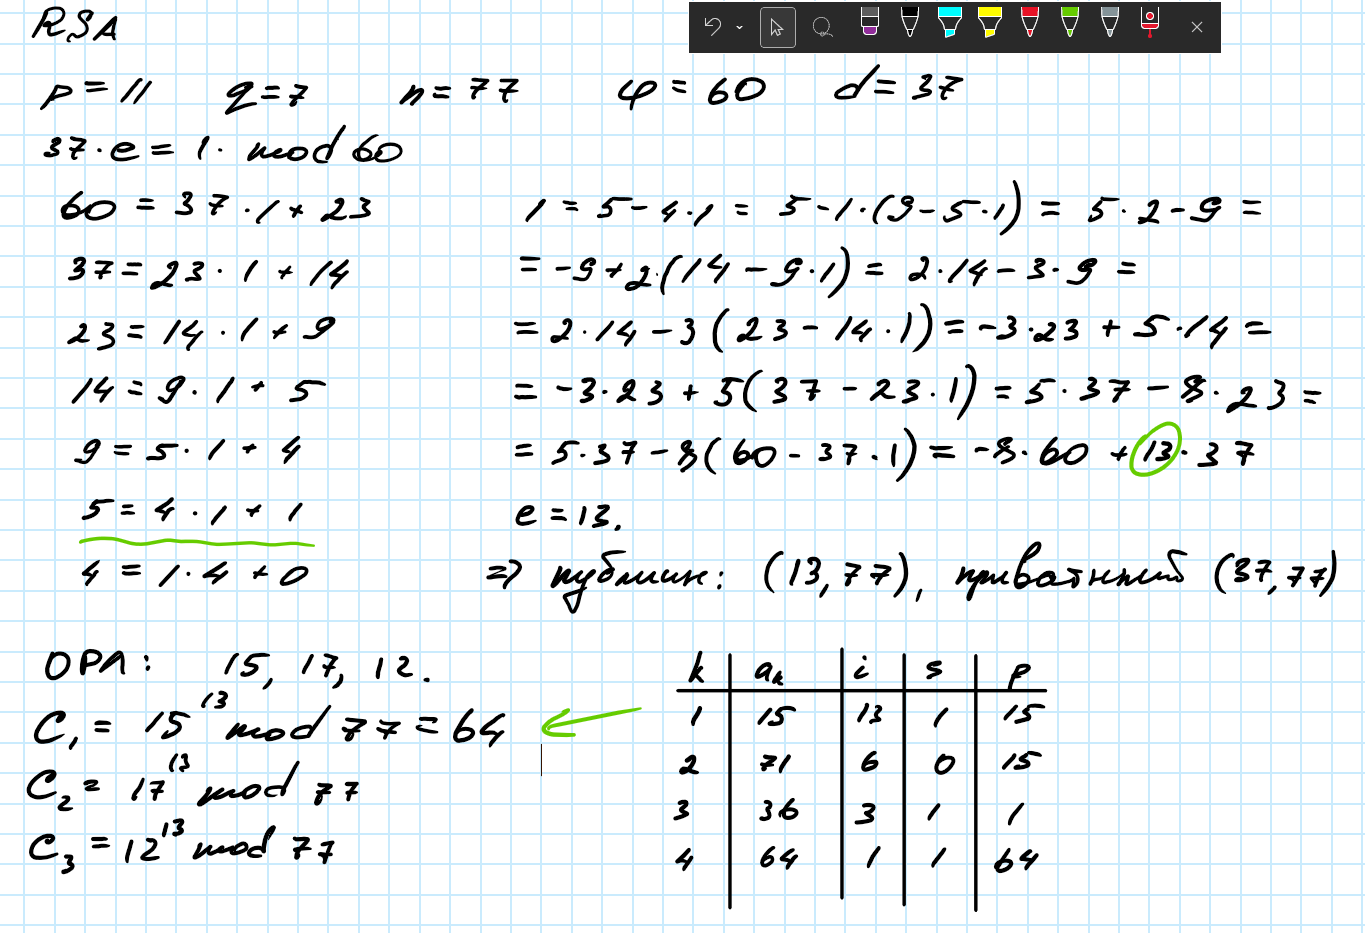 RSA
p = 11 q = 7 n = 77 φ = 60 d = 37
37 · e = 1 · mod 60
60 = 37 · 1 + 23
37 = 23 · 1 + 14
23 = 14 · 1 + 9
14 = 9 · 1 + 5
9 = 5 · 1 + 4
5 = 4 · 1 + 1
4 = 1 · 4 + 0
1 = 5 - 4 · 1 = 5 - 1 · (9 - 5 · 1) = 5 · 2 - 9 =
= -9 + 2 · (14 - 9 · 1) = 2 · 14 - 3 · 9 =
= 2 · 14 - 3 (23 - 14 · 1) = -3 · 23 + 5 · 14 =
= -3 · 23 + 5 (37 - 23 · 1) = 5 · 37 - 8 · 23 =
= 5 · 37 - 8 (60 - 37 · 1) = -8 · 60 + 13 · 37
e = 13.
=> публик: (13, 77), приватный (37, 77)
ОРЛ: 15, 17, 12.
C₁ = 15¹³ mod 77 = 64
C₂ = 17¹³ mod 77
C₃ = 12¹³ mod 77
k aₖ i s p
1 15 13 1 15
2 71 6 0 15
3 36 3 1 1
4 64 1 1 64